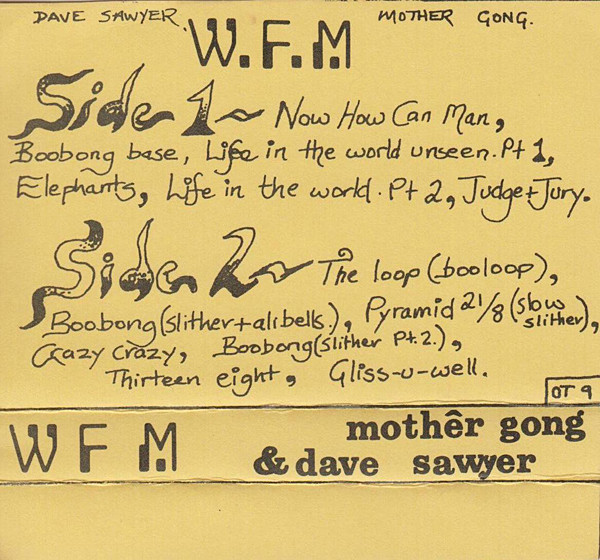 DAVE SAWYER. MOTHER GONG.
W.F.M
Side 1~ Now How Can Man,
Boobong base, Life in the world unseen. Pt 1,
Elephants, Life in the world. Pt 2, Judge+Jury.
Side 2~ The loop (booloop),
Boobong (slither+alibells.), Pyramid 21/8 (slow slither),
Crazy Crazy, Boobong (slither Pt.2.),
Thirteen eight, Gliss-u-well.
OT 9
WFM mothêr gong
& dave sawyer